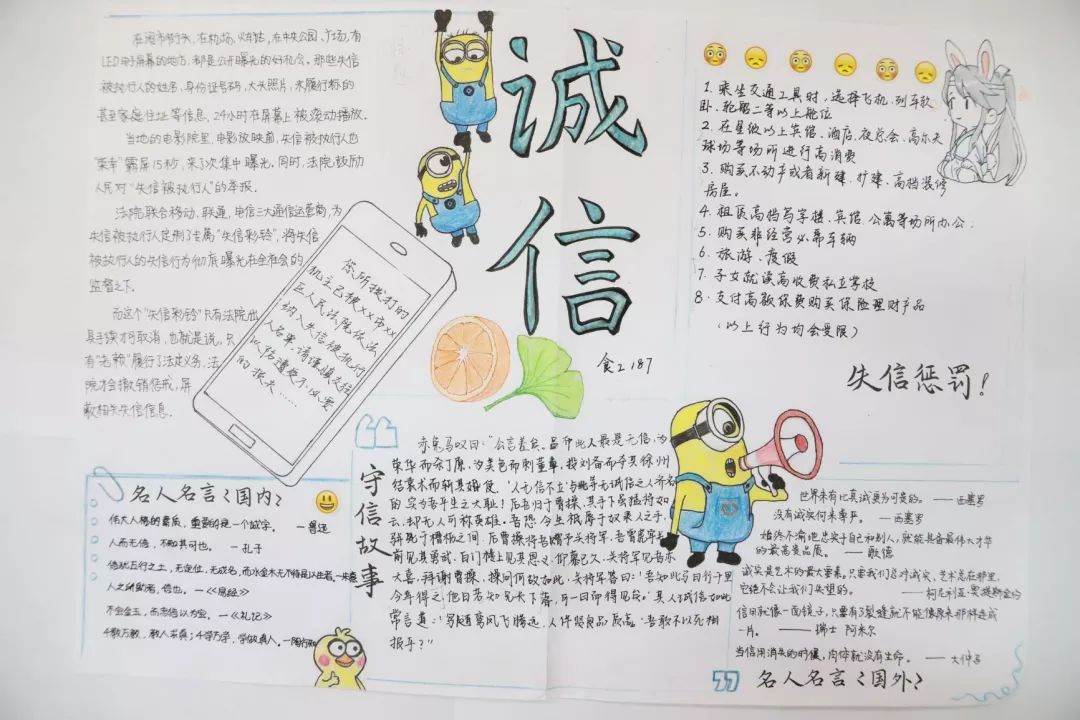 在闹市街头、在机场、火车站、在中央公园、广场,有
LED电子屏幕的地方,都是公开曝光的好机会。那些失信
被执行人的姓名,身份证号码,大头照片,未履行标的
甚至家庭住址等信息,24小时在屏幕上被滚动播放。
当地的电影院里,电影放映前,失信被执行人也
"荣幸"霸屏15秒,来了次集中曝光。同时,法院鼓励
人民对"失信被执行人"的举报。
法院联合移动、联通、电信三大通信运营商,为
失信被执行人定制了专属"失信彩铃",将失信
被执行人的失信行为彻底曝光在全社会的
监督之下。
而这个"失信彩铃"只有法院出
具手续才可取消,也就是说,只
有"老赖"履行了法定义务,法
院才会撤销惩戒,屏
蔽相关失信信息。
您所拨打的
机主已被xx市xx
区人民法院依法
纳入失信被执行
人名单,请谨慎交往
以防遭受不必要
的损失……
诚
信
食工187
1. 乘坐交通工具时,选择飞机、列车软
卧、轮船二等以上舱位
2. 在星级以上宾馆、酒店、夜总会、高尔夫
球场等场所进行高消费
3. 购买不动产或者新建、扩建、高档装修
房屋。
4. 租赁高档写字楼、宾馆、公寓等场所办公;
5. 购买非经营必需车辆
6. 旅游、度假
7. 子女就读高收费私立学校
8. 支付高额保费购买保险理财产品
(以上行为均会受限)
失信惩罚!
名人名言<国内>
伟大人格的素质,重要的是一个诚字。 —鲁迅
人而无信,不知其可也。 —孔子
信犹五行之土,无定位,无成名,而水金木无不待是以生者。—朱熹
人之所助者,信也。 —《易经》
不宝金玉,而忠信以为宝。 —《礼记》
千教万教,教人求真;千学万学,学做真人。—陶行知
守信故事
赤兔马叹曰:"公言差矣。吕布此人最是无信,为
荣华而杀丁原,为美色而刺董卓,投刘备而夺其徐州
结袁术而斩其婚使。'人无信不立'与此等无诚信之人齐名
的,实为吾平生之大耻!后吾归于曹操,其手下虽猛将如
云,却无人可称英雄。吾恐今生只辱于奴隶人之手,
骈死于槽枥之间。后曹操将吾赠予关将军;吾曾于虎牢
前见其勇武,白门楼上见其恩义,仰慕已久。关将军见吾亦
大喜,拜谢曹操。操问何故如此,关将军答曰:'吾知此马日行千里
今幸得之,他日若知兄长下落,可一日而得见矣。'其人诚信如此
常言道:'鸟随鸾凤飞腾远,人伴贤良品质高。'吾敢不以死相
报乎?"
世界未有比真诚更为可爱的。 ——西塞罗
没有诚实何来尊严。 —西塞罗
始终不渝地忠实于自己和别人,就能具备最伟大才华
的最高贵品质。 —歌德
诚实是艺术的最大要素。只要我们忽对诚实,艺术总在那里,
它绝不会让我们失望的。
信用就像一面镜子,只要有了裂缝就不能像原来那样连成
一片。 ——瑞士 阿米尔
当信用消失的时候,肉体就没有生命。 —大仲马
名人名言<国外>